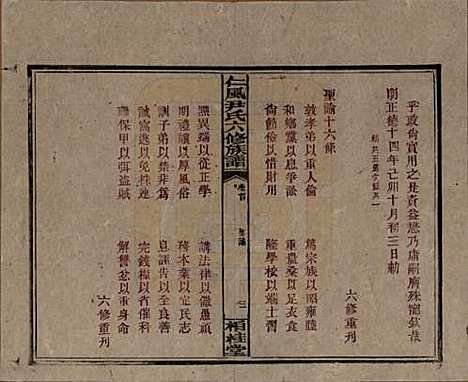 乎政尚實用之是資益懋乃庸嗣膺殊寵欽哉
明正德十四年己卯十月初三日勅
六修重刊
聖諭十六條
敦孝弟以重人倫　篤宗族以昭雍睦
和鄉黨以息爭訟　重農桑以足衣食
尚節儉以惜財用　隆學校以端士習
仁風尹氏六修族譜　卷首　聖諭　三　相桂堂
黜異端以從正學　講法律以儆愚頑
明禮讓以厚風俗　務本業以定民志
訓子弟以禁非為　息誣告以全善良
誡窩逃以免株連　完錢糧以省催科
聯保甲以弭盜賊　解讐忿以重身命
六修重刊